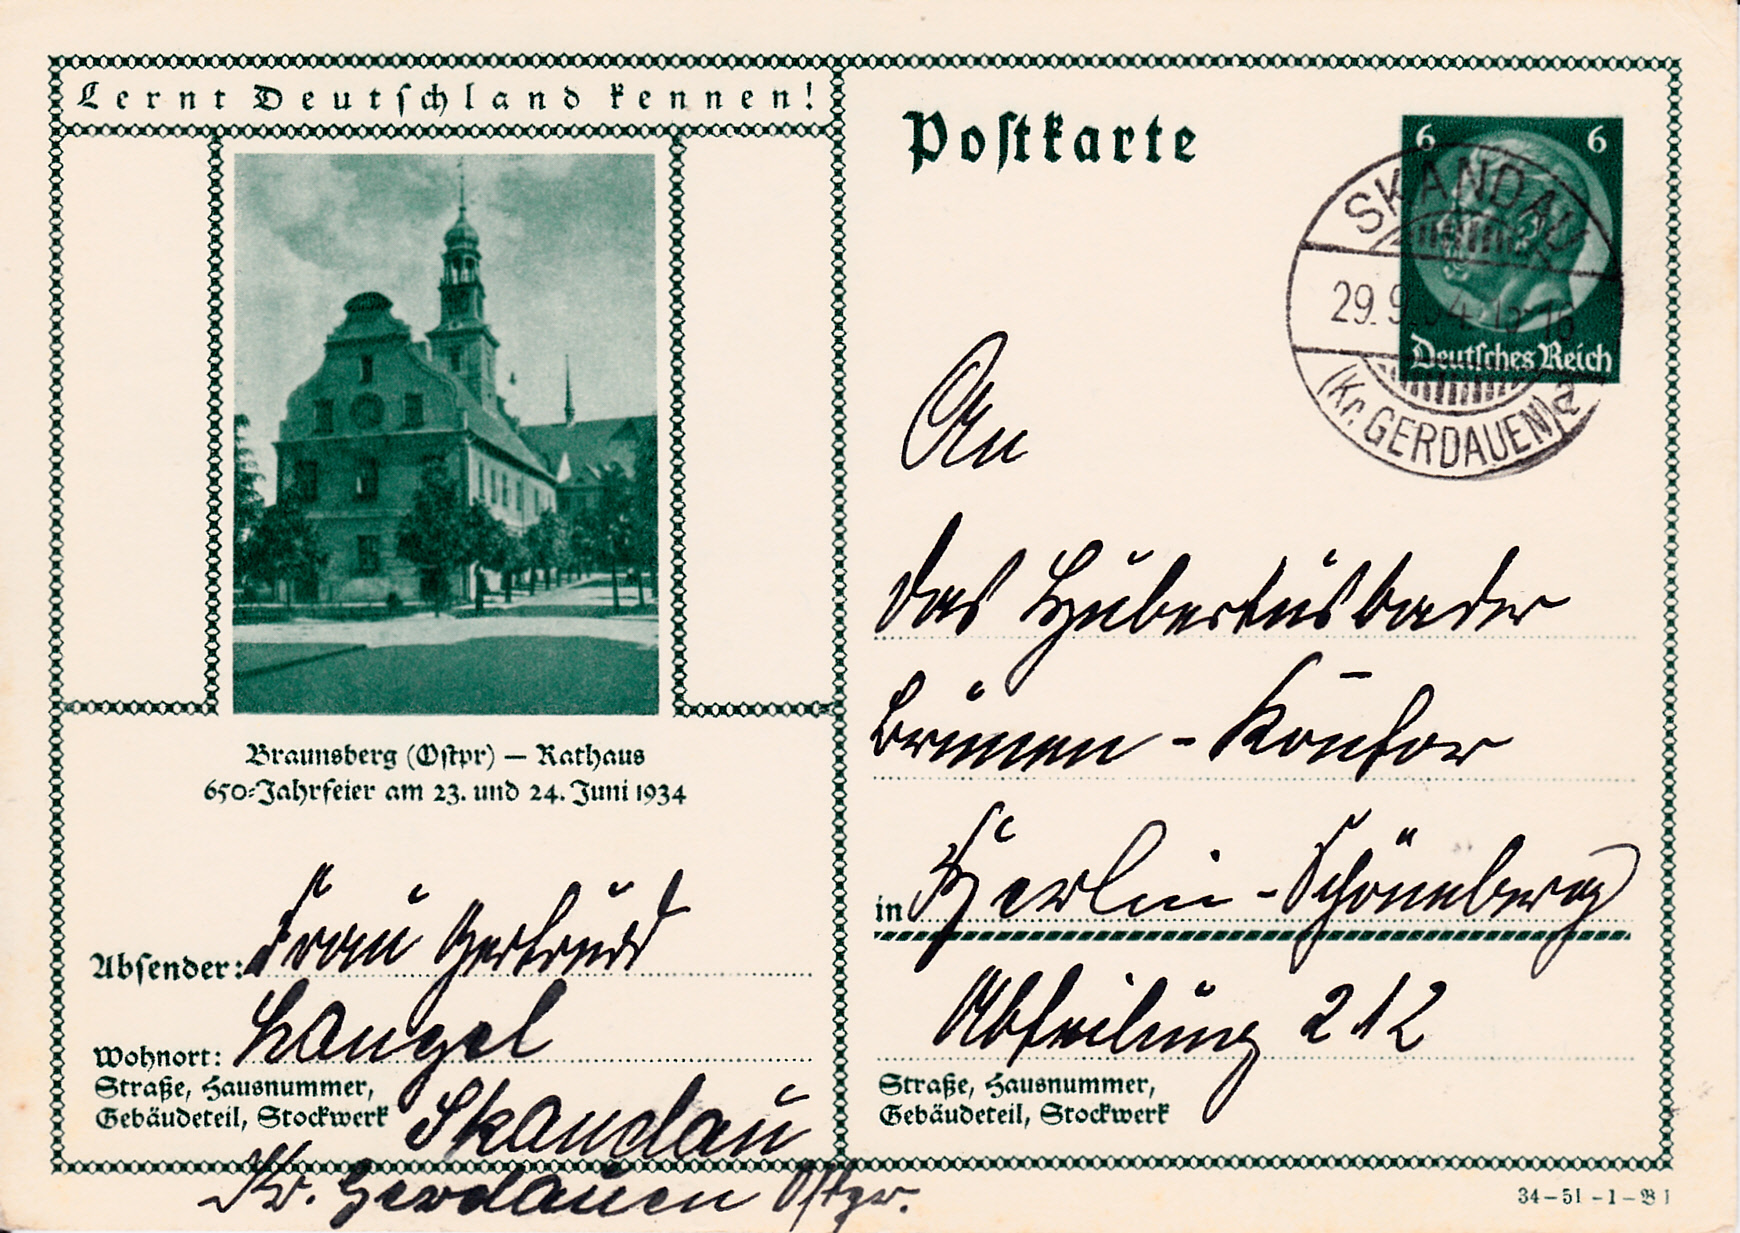 Lernt Deutschland kennen!
Braunsberg (Ostpr) — Rathaus
650-Jahrfeier am 23. und 24. Juni 1934
Absender: Frau Gertrud
Wohnort: Langel
Straße, Hausnummer,
Gebäudeteil, Stockwerk
Skandau
Kr. Gerdauen Ostpr.
Postkarte
6 6
Deutsches Reich
SKANDAU
29.9.34.15-16
(Kr. GERDAUEN) a
An
das Hubertusbader
Brunnen-Kontor
in Berlin-Schöneberg
Abteilung 212
Straße, Hausnummer,
Gebäudeteil, Stockwerk
34-51-1-B1